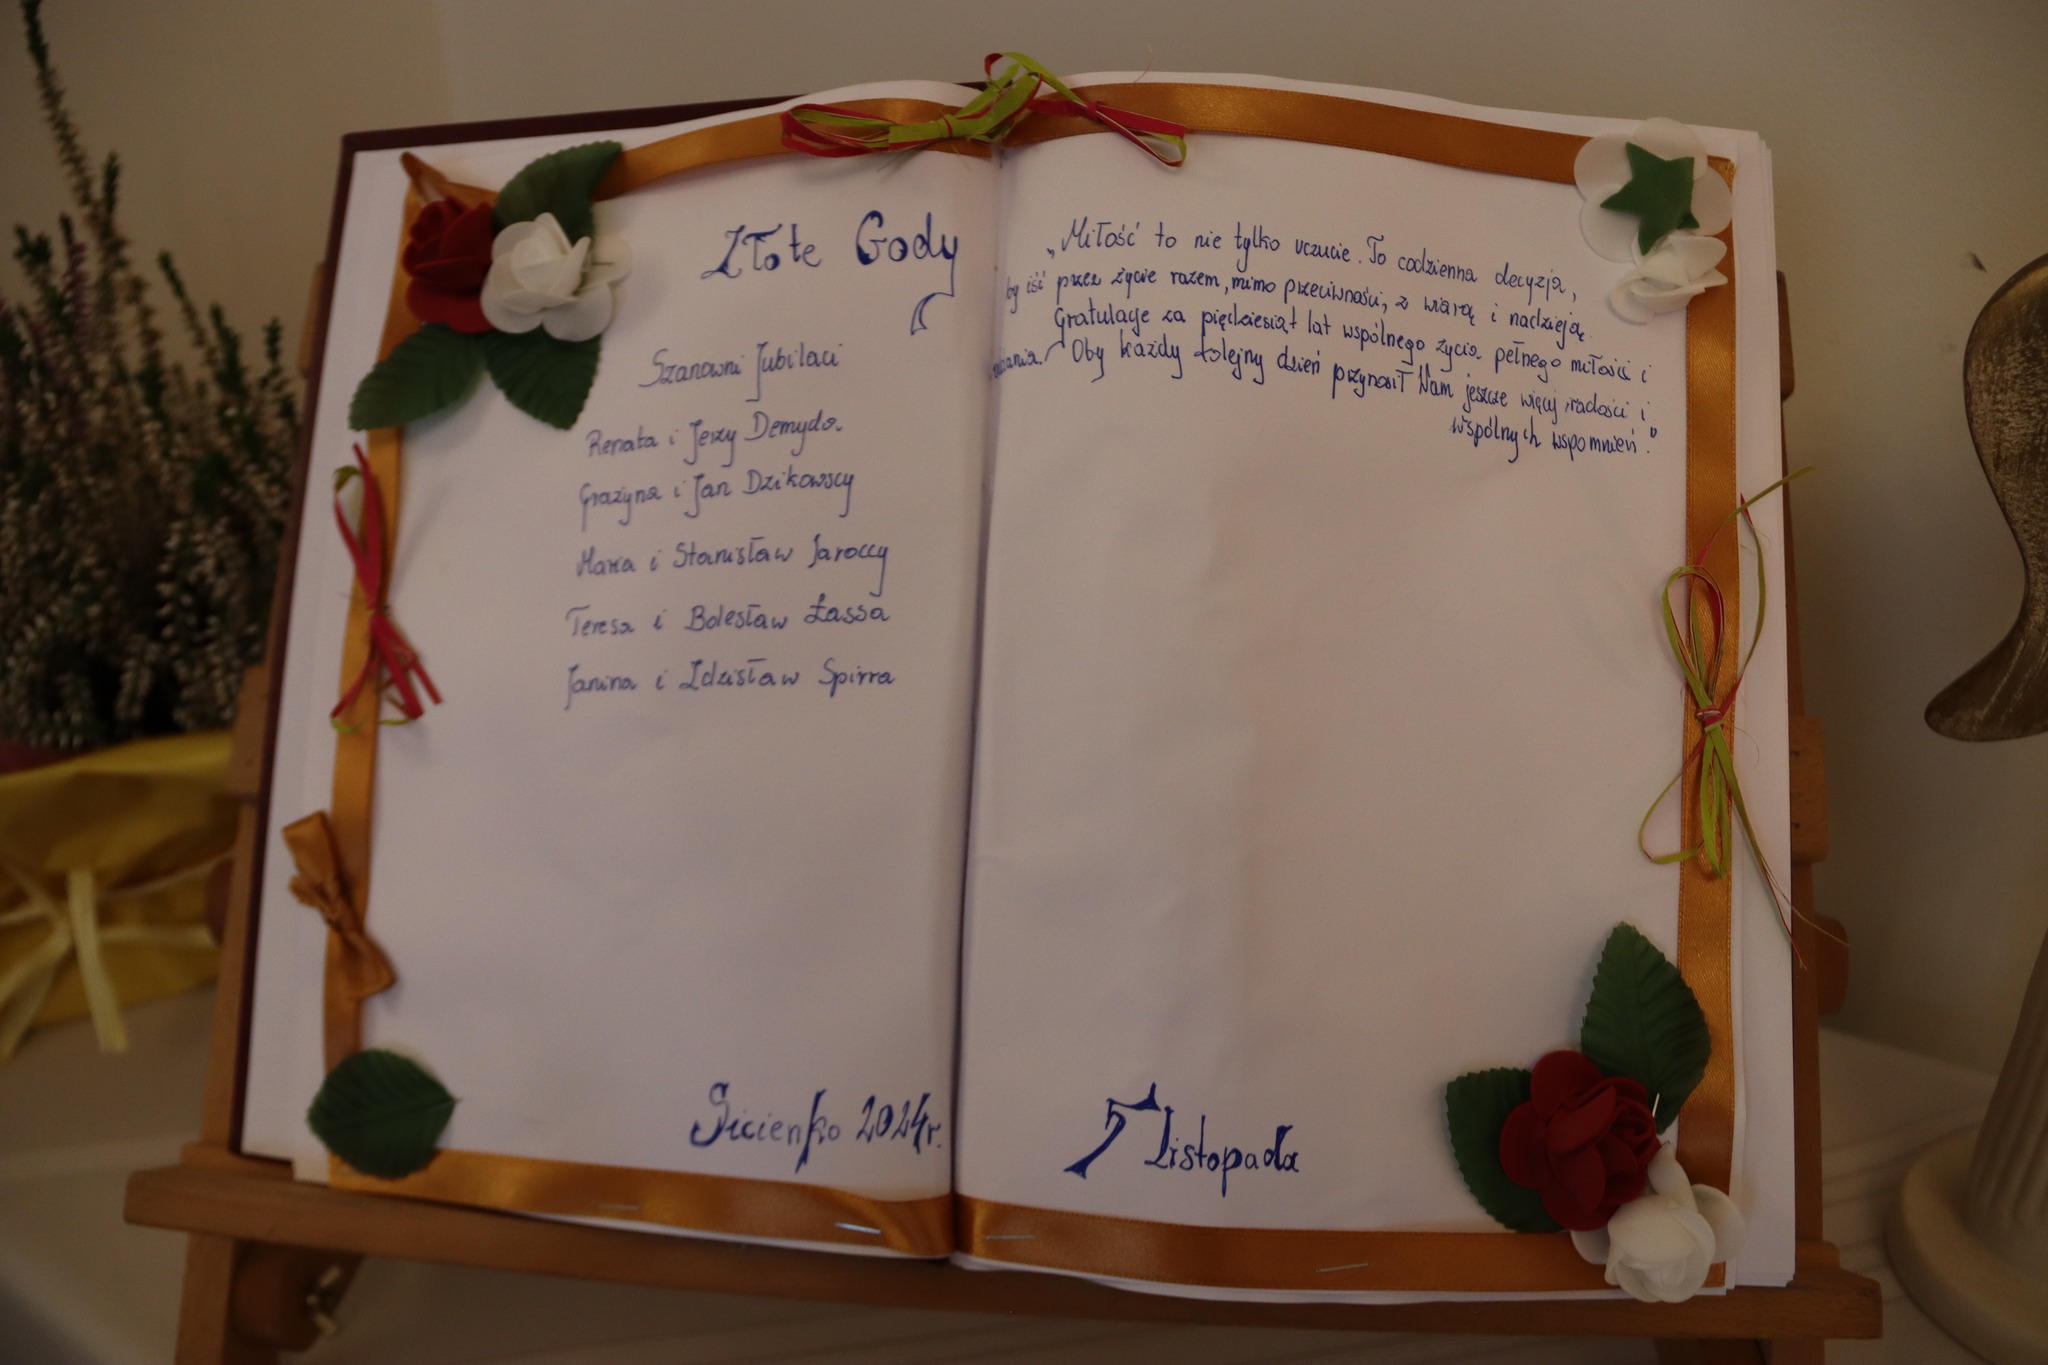 Złote Gody
Szanowni Jubilaci
Renata i Jerzy Demyda
Grażyna i Jan Dzikowscy
Maria i Stanisław Jaroccy
Teresa i Bolesław Łassa
Janina i Zdzisław Spirra
Sicienko 2024r.
„Miłość to nie tylko uczucie. To codzienna decyzja,
by iść przez życie razem, mimo przeciwności, z wiarą i nadzieją.
Gratulacje za pięćdziesiąt lat wspólnego życia pełnego miłości i
Oby każdy kolejny dzień przynosił Wam jeszcze więcej radości i
wspólnych wspomnień."
7 Listopada